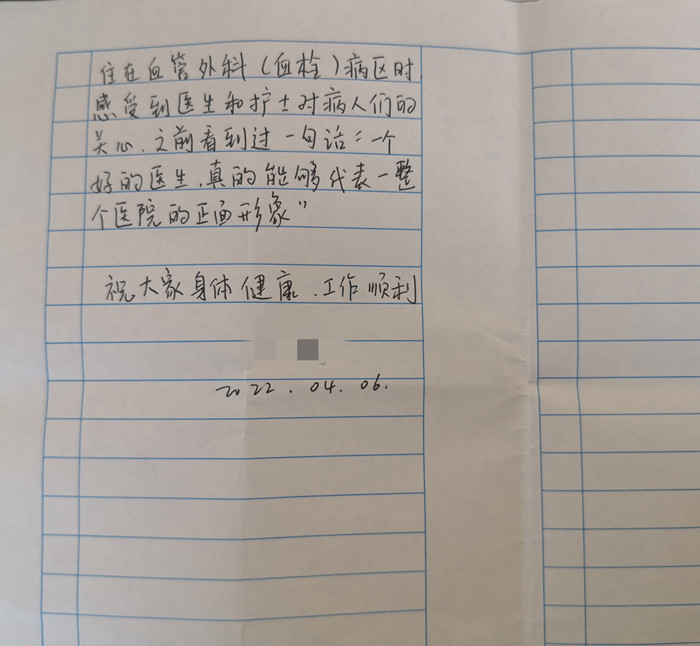 住在血管外科（血栓）病区时，
感受到医生和护士对病人们的
关心。之前看到过一句话：“一个
好的医生，真的能够代表一整
个医院的正面形象”
祝大家身体健康，工作顺利
2022.04.06.